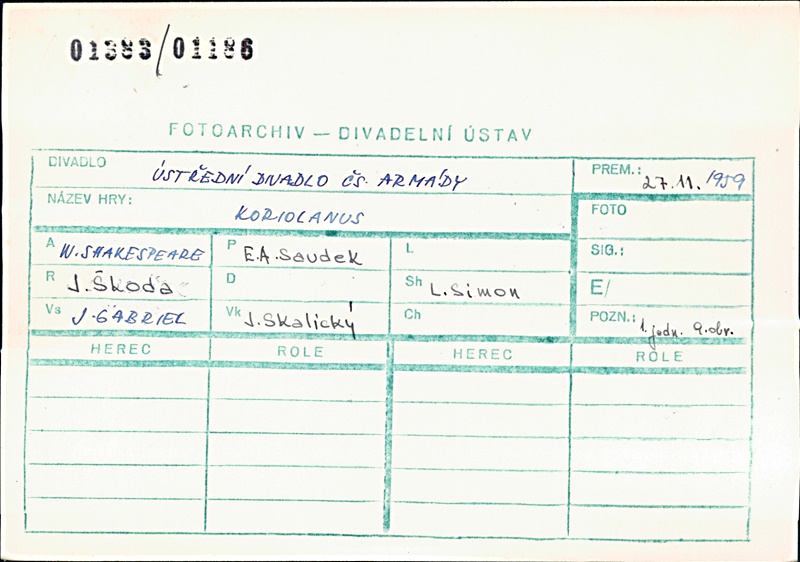 01383/01186
FOTOARCHIV — DIVADELNÍ ÚSTAV
DIVADLO ÚSTŘEDNÍ DIVADLO ČS. ARMÁDY PREM.: 27.11.1959
NÁZEV HRY: KORIOLANUS FOTO
A W. SHAKESPEARE P E.A. Saudek L SIG.:
R J. Škoda D Sh L. Simon E/
Vs J. GABRIEL Vk J. Skalický Ch POZN.: 1. jedn. 9. obr.
HEREC ROLE HEREC ROLE